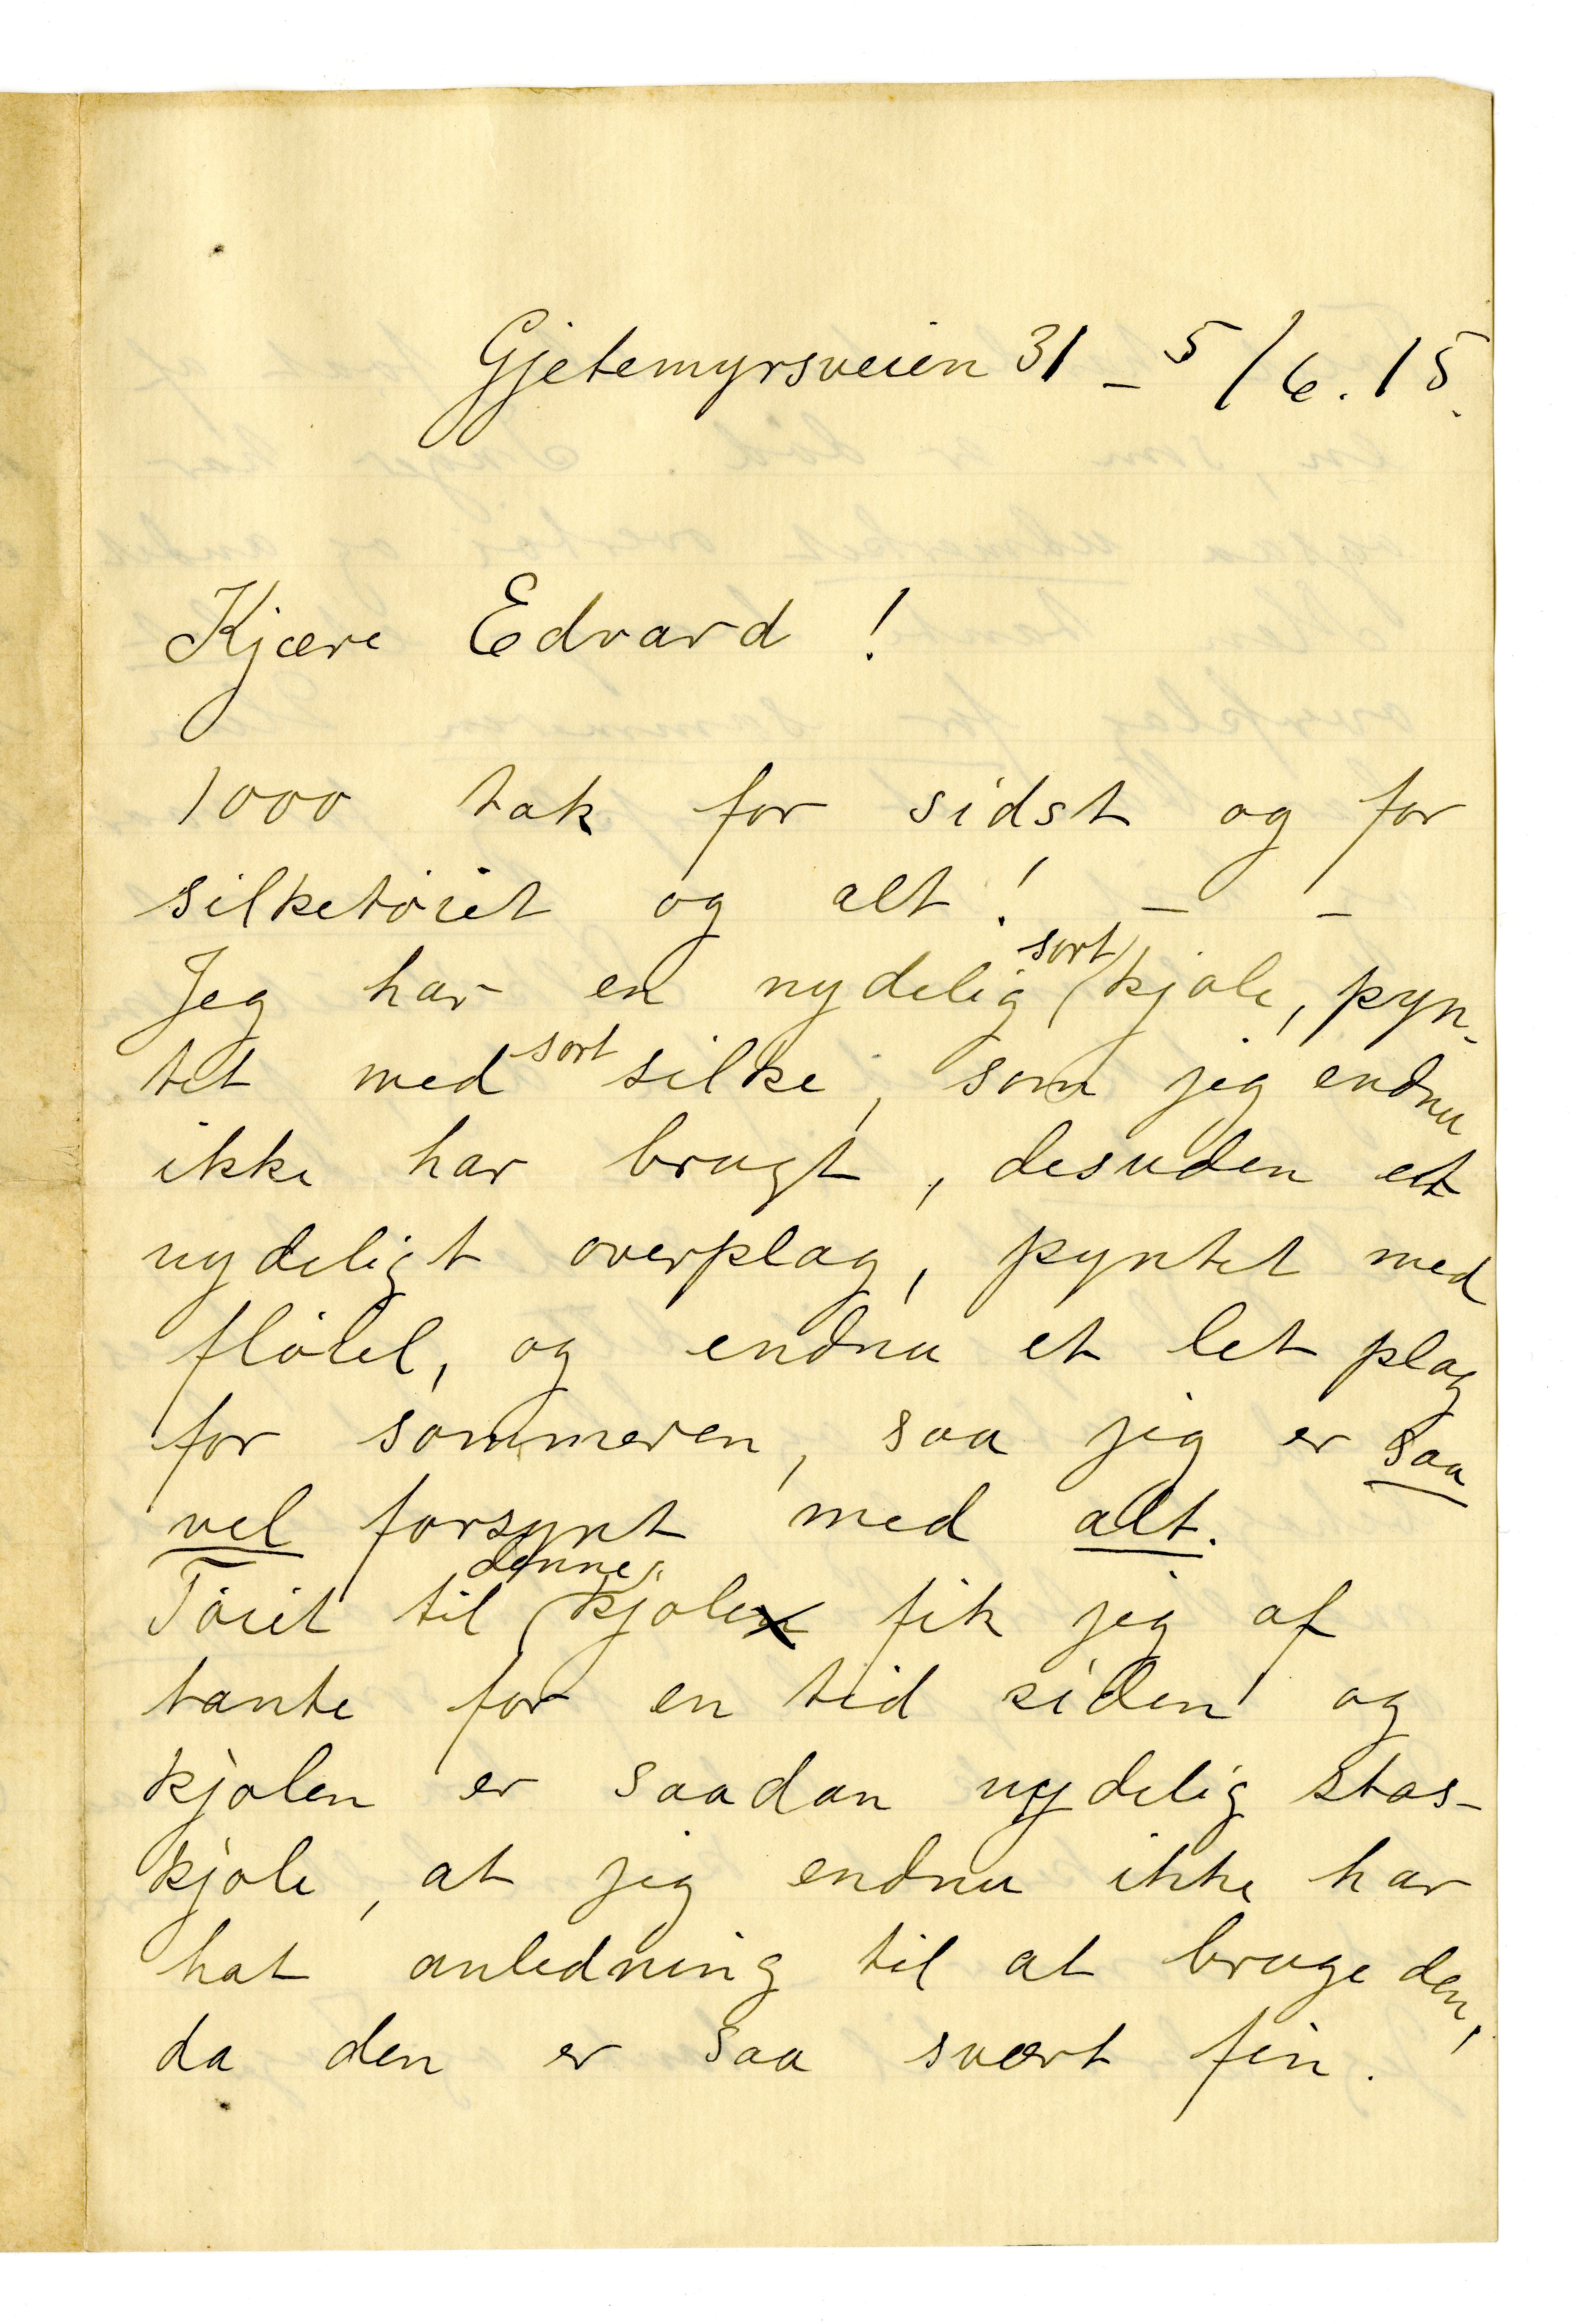 Gjetemyrsveien 31 – 5/6. 15.
Kjære Edvard !
1000 tak for sidst og for
silketøiet og alt ! – –
Jeg har en nydelig sort kjole, pyn-
tet med sort silke, som jeg endnu
ikke har brugt, desuden et
nydeligt overplag, pyntet med
fløiel, og endnu et let plag
for sommeren, saa jeg er saa
vel forsynt med alt.
Tøiet til denne kjole fik jeg af
tante for en tid siden og
kjolen er saadan nydelig stas-
kjole, at jeg endnu ikke har
hat anledning til at bruge den,
da den er saa svært fin.